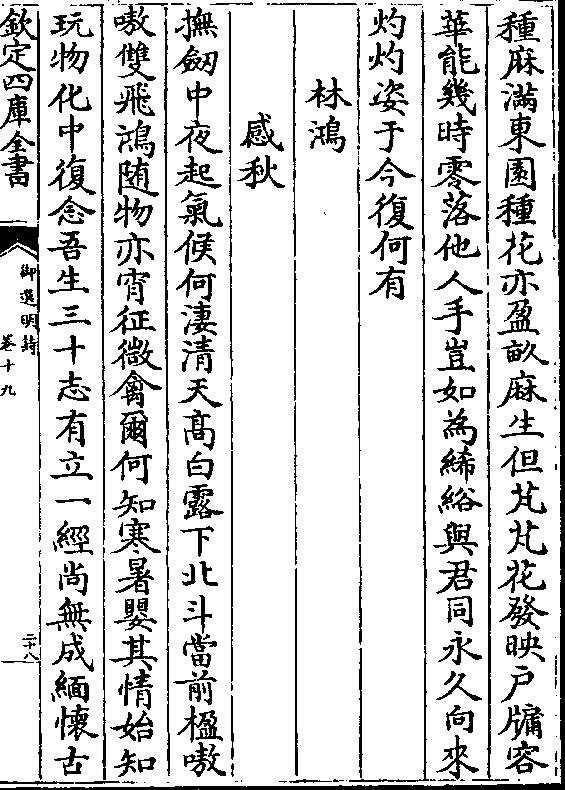 種麻滿東園種花亦盈畝麻生但芃芃花發映戶牖容
華能幾時零落他人手豈如為絺綌與君同永久向來
灼灼姿于今復何有
林鴻
感秋
撫劒中夜起氣候何淒清天髙白露下北斗當前楹嗷
嗷雙飛鴻随物亦宵征微禽爾何知寒暑嬰其情始知
玩物化中復念吾生三十志有立一經尚無成緬懷古
欽定四庫全書
御選明詩
卷十九
二十八